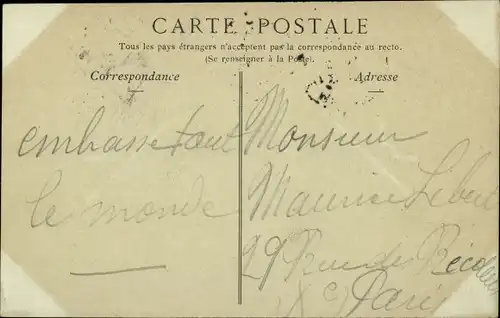 CARTE POSTALE
Tous les pays étrangers n'acceptent pas la correspondance au recto.
(Se renseigner à la Poste).
Correspondance
Adresse
embasse tout
le monde
Monsieur
Maurice
29 Rue des
Xe Paris